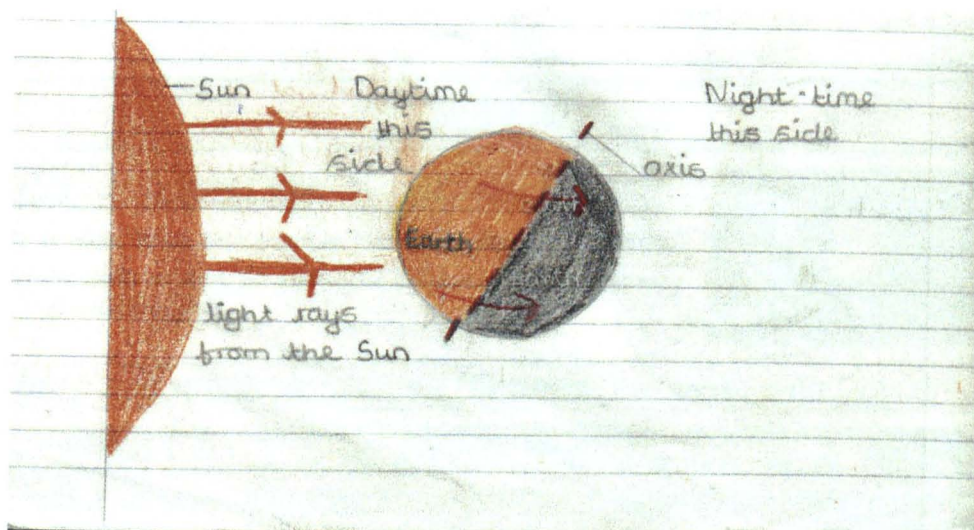 Sun
Daytime
this
side
Night-time
this side
axis
Earth
light rays
from the Sun